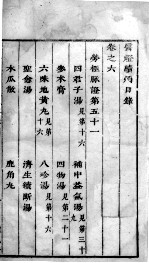 卷之六
勞瘵脉證第五十一
四君子湯見第十六
補中益氣湯見第三十九
參朮膏
四物湯見第二十一
六味地黃丸見第十六
八珍湯見第十六
聖愈湯
濟生續斷湯
木瓜散
鹿角丸